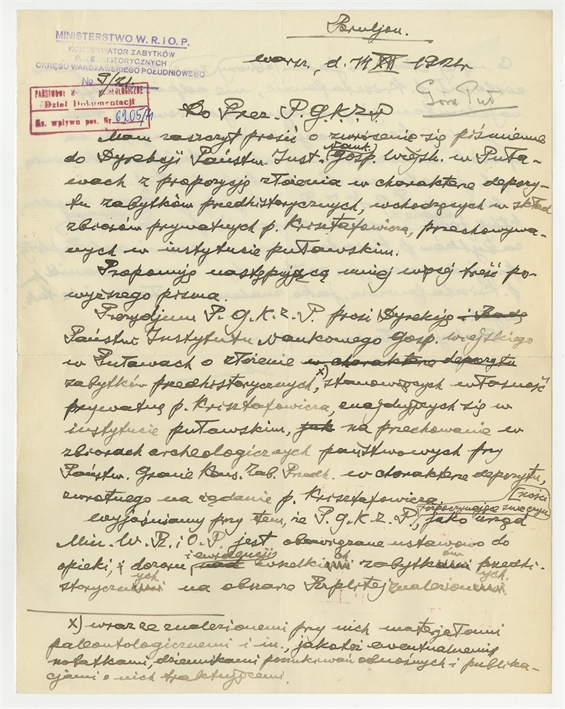 MINISTERSTWO W. R. i O. P.
KONSERWATOR ZABYTKÓW
OKRĘGU WARSZAWSKIEGO POŁUDNIOWEGO
№ 9/21.
Dział Dokumentacji
Ks. wpływu poz. Nr 6205/11
Warsz., d. 14 XII 192
Góra Puł
Do Prez. P. G. K. Z. P.
Mam zaszczyt prosić o zwrócenie się piśmienne
do Dyrekcji Państw. Inst. Nauk. Gosp. Wiejsk. w Puła-
wach z propozycją złożenia w charakterze depozy-
tu zabytków przedhistorycznych, wchodzących w skład
zbiorów prywatnych p. Krisztafowicza, przechowywa-
nych w instytucie puławskim.
Proponuję następującą mniej więcej treść po-
wyższego pisma.
Prezydjum P. G. K. Z. P. prosi Dyrekcję
Państw. Instytutu Naukowego Gosp. wiejskiego
w Puławach o złożenie w charakterze depozytu
zabytków przedhistorycznych, x) stanowiących własność
prywatną p. Krisztafowicza, znajdujących się w
instytucie puławskim, jak na przechowanie w
zbiorach archeologicznych państwowych przy
Państw. Gronie Kons. Zab. Przedh. w charakterze depozytu,
zwrotnego na żądanie p. Krisztafowicza.
Wyjaśniamy przy tem, że P. G. K. Z. P., jako urząd
Min. W. R. i O. P. jest obowiązane ustawowo do
opieki, i dozoru, i ewidencji nad wszelkich zabytków przedhi-
storycznych na obszarze Rzplitej znalezionych
x) wraz ze znalezionemi przy nich materjałami
paleontologicznemi i in., jakoteż ewentualnemi
notatkami, dziennikami poszukiwań odnośnych i publika-
cjami o nich traktującemi.